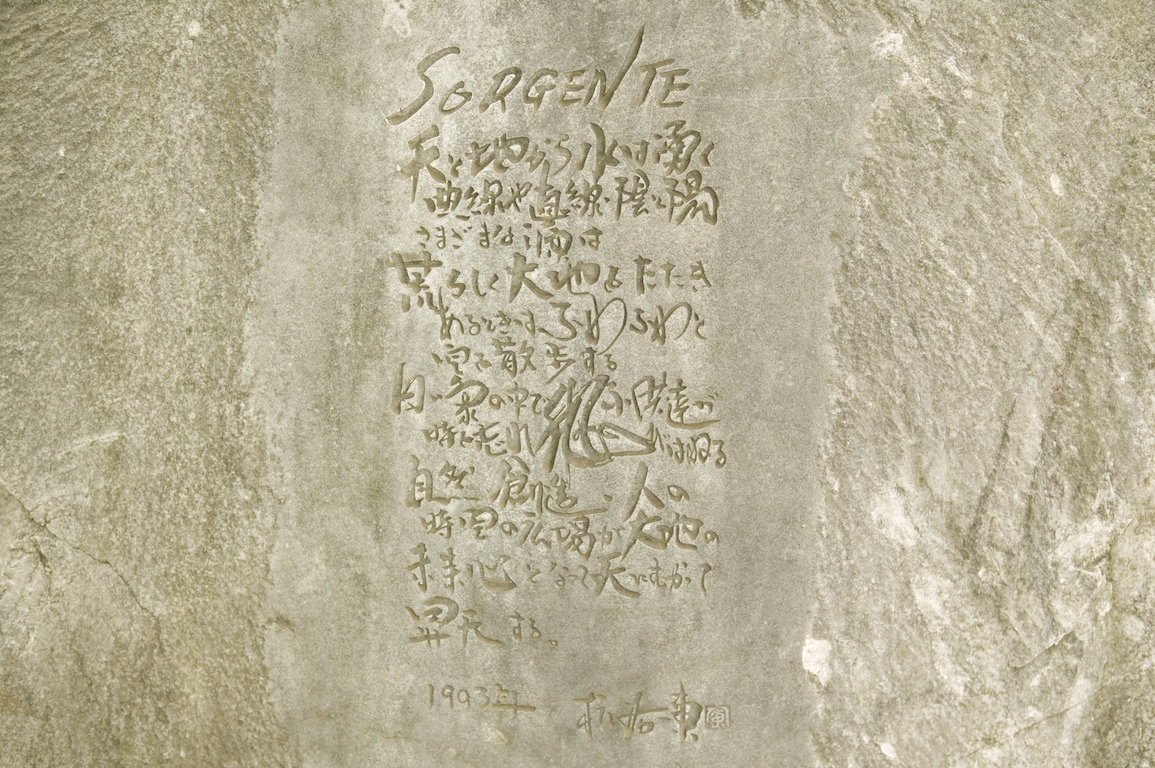 SORGENTE
天と地から水は湧く
曲線や直線、陰と陽
さまざまな滴は
荒らしく大地をたたき
あるときはふわふわと
空を散歩する
自然の中で
時を忘れ
自然、創造、人の
時空の広場が大地の
となって天にむかって
昇天する。
1993年